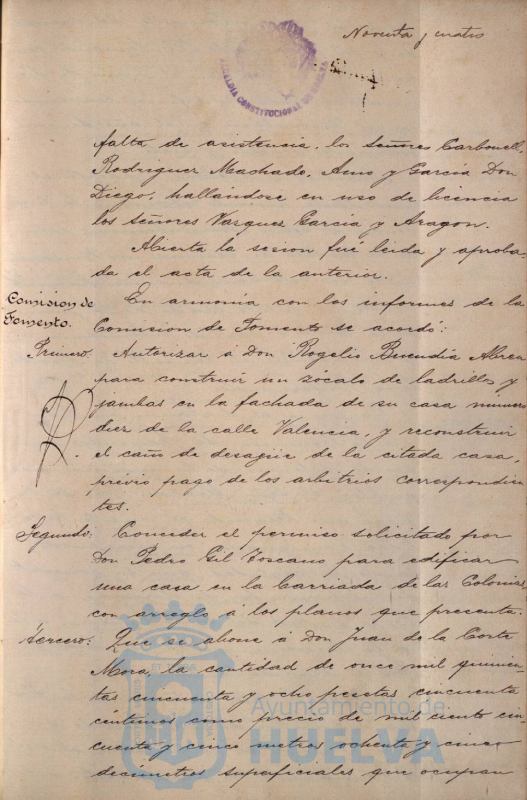 Noventa y cuatro
ALCALDIA CONSTITUCIONAL DE HUELVA
falta de asistencia, los señores Carbonell,
Rodriguez Machado, Amo y García Don
Diego, hallándose en uso de licencia
los señores Vazquez García y Aragon.
Abierta la sesion fué leida y aproba-
da el acta de la anterior.
Comision de
Fomento.
En armonia con los informes de la
Comision de Fomento se acordó:
Primero: Autorizar á Don Rogelio Buendía Abrea
para construir un zócalo de ladrillos y
jambas en la fachada de su casa numero
diez de la calle Valencia, y reconstruir
el caño de desagüe de la citada casa,
previo pago de los arbitrios correspondien
tes.
Segundo: Conceder el permiso solicitado por
Don Pedro Gil Toscano para edificar
una casa en la Barriada de las Colonias,
con arreglo á los planos que presenta.
Tercero: Que se abone á Don Juan de la Corte
Mora, la cantidad de once mil quinien
tas cincuenta y ocho pesetas cincuenta
céntimos como precio de mil ciento cin
cuenta y cinco metros ochenta y cinco
decímetros superficiales que ocupan
Ayuntamiento de
HUELVA